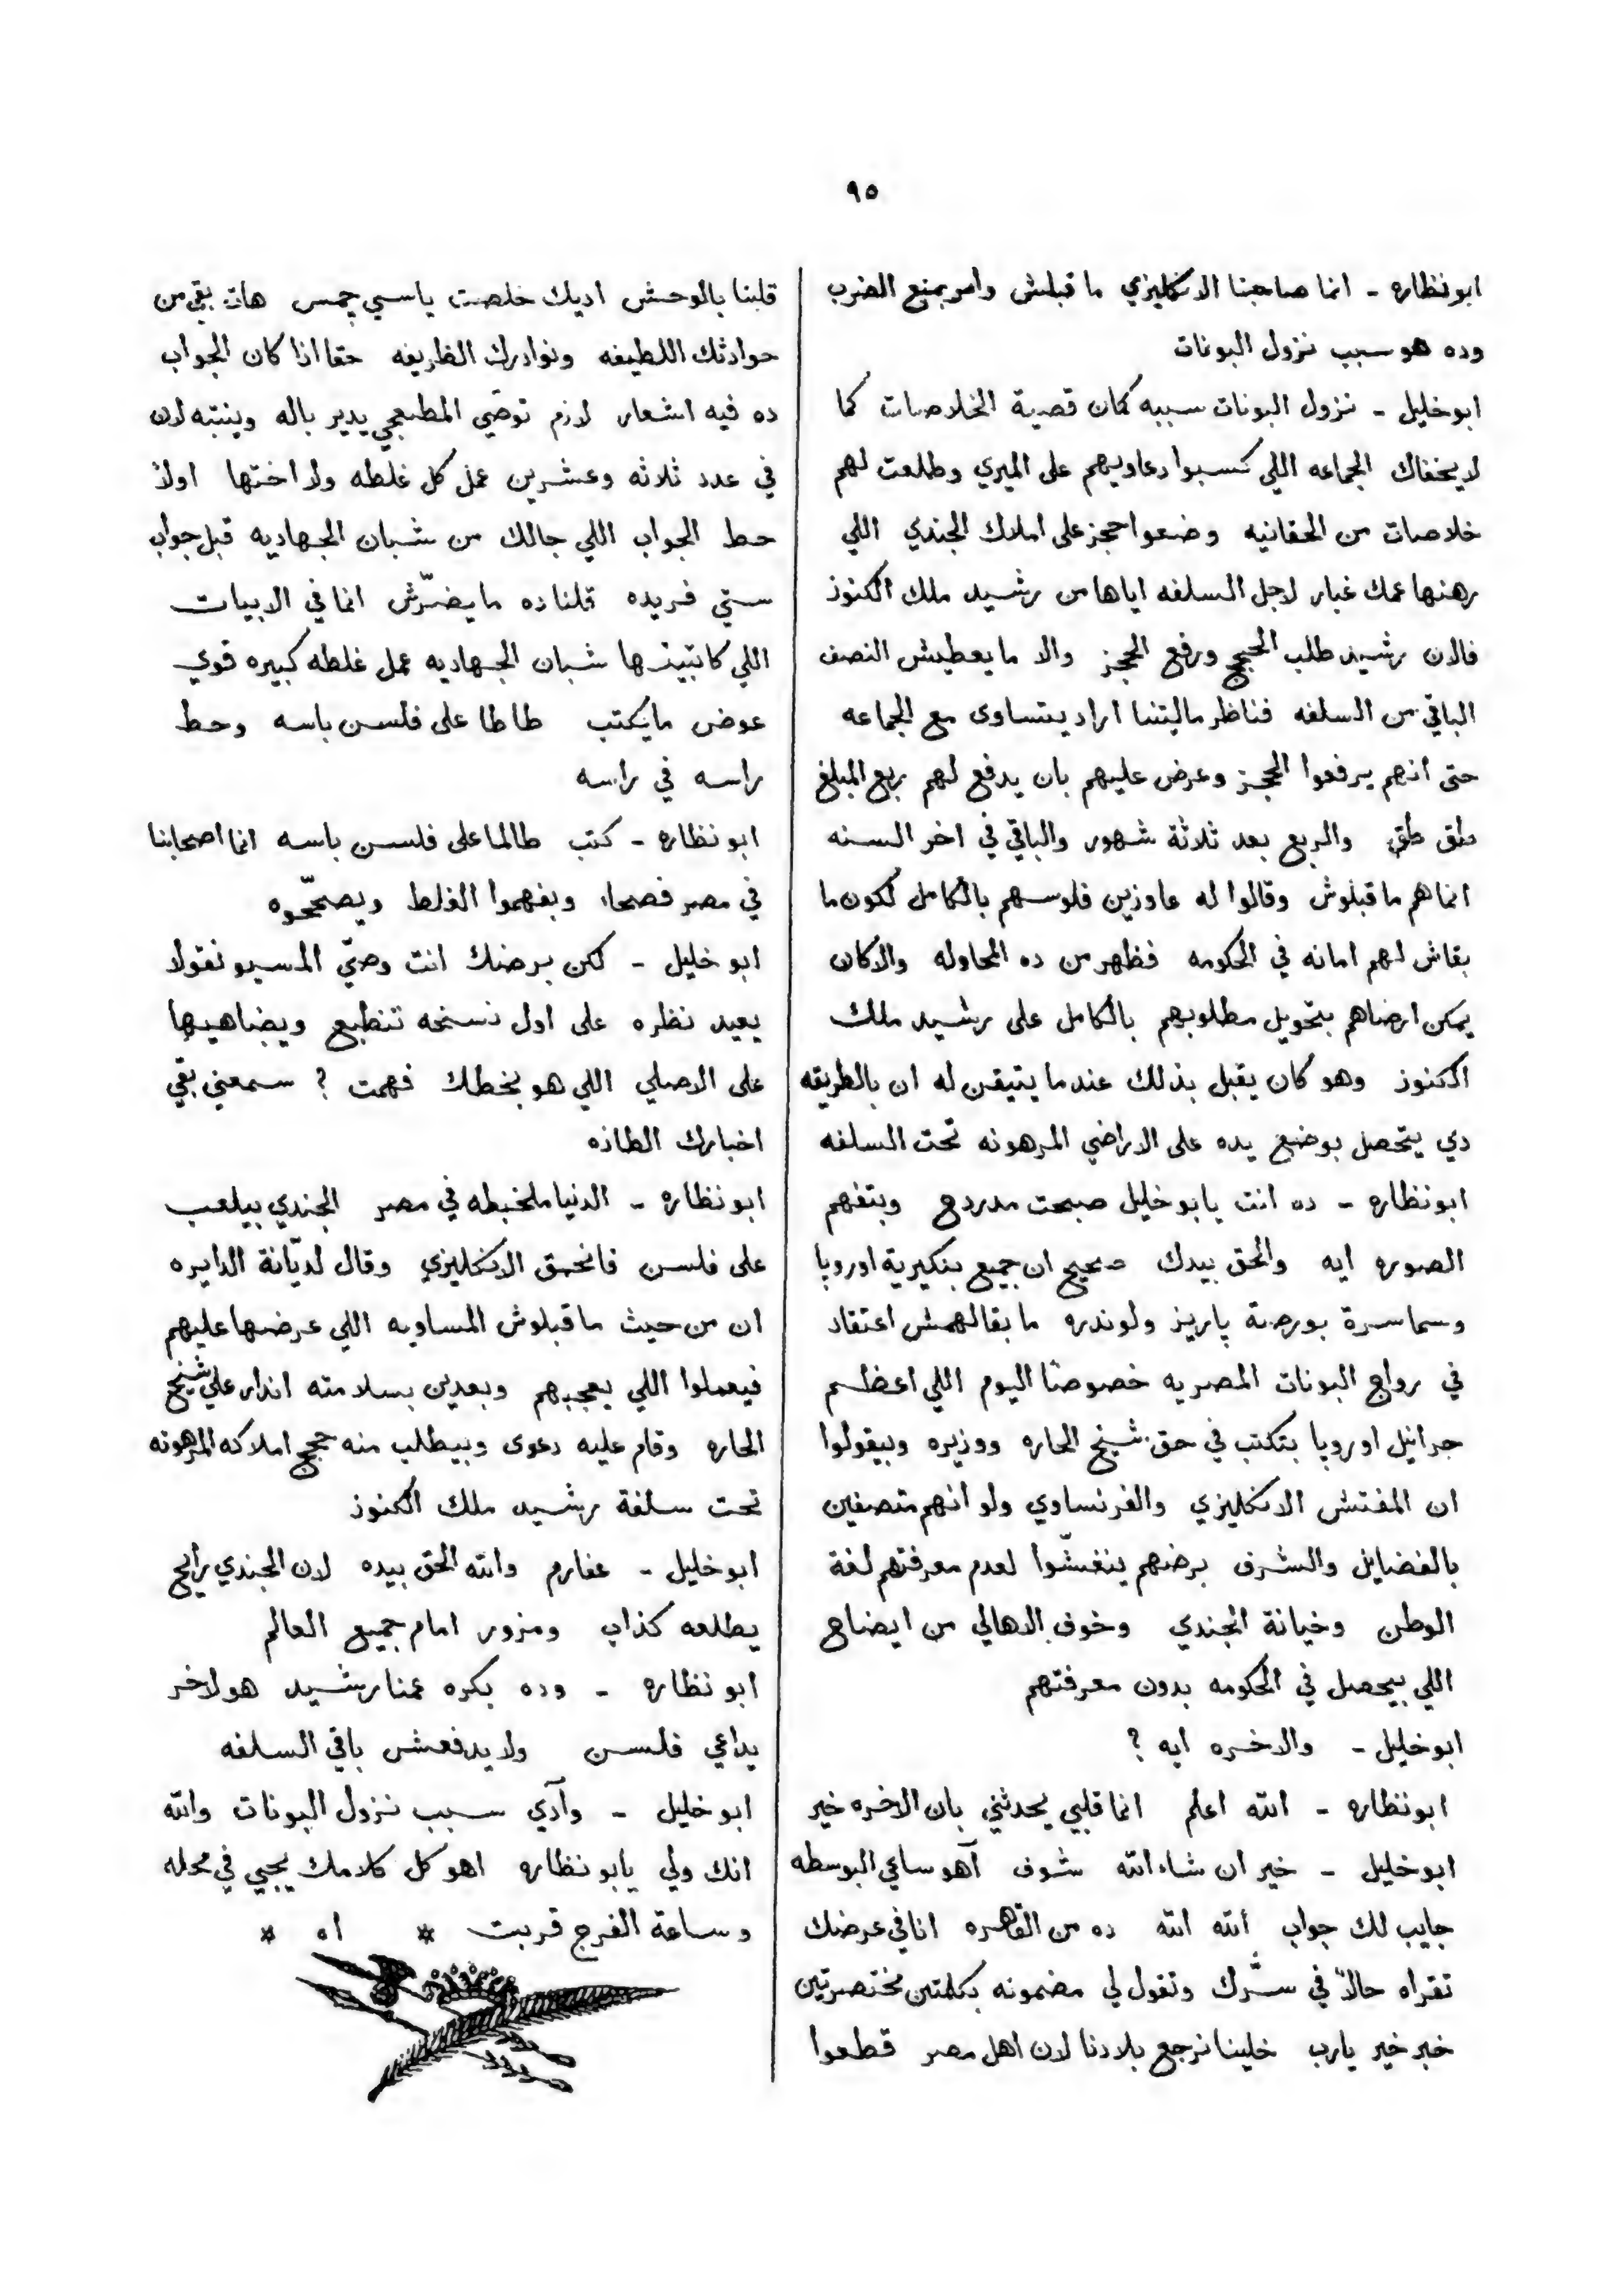 ٩٥
ابونظاره - انما صاحبنا الانكليزي ما قبلش وامر بمنع الضرب
وده هو سبب نزول البونات
ابوخليل - نزول البونات سببه كمان قضية الخلاصات كما
لا يخفاك الجماعه اللي كسبوا دعاويهم على الميري وطلعت لهم
خلاصات من الحقانيه وضعوا حجز على املاك الجندي اللي
رهنها عمك غبار لاجل السلفه اياها من رشيد ملك الكنوز
فالان رشيد طلب الحجج ورفع الحجز والا ما يعطيش النصف
الباقي من السلفه فناظر ماليتنا اراد يتساوى مع الجماعه
حتى انهم يرفعوا الحجز وعرض عليهم بان يدفع لهم ربع المبلغ
طق طق والربع بعد ثلاثة شهور والباقي في اخر السنه
انما هم ما قبلوش وقالوا له عاوزين فلوسهم بالكامل لكون ما
بقاش لهم امانه في الحكومه فظهر من ده المحاوله والا كان
يمكن ارضاهم بتحويل مطلوبهم بالكامل على رشيد ملك
الكنوز وهو كان يقبل بذلك عندما يتيقن له ان بالطريقه
دي يتحصل بوضع يده على الاراضي المرهونه تحت السلفه
ابونظاره - ده انت يابو خليل صبحت مدردح وبتفهم
الصوره ايه والحق بيدك صحيح ان جميع بنكيرية اوروپا
وسماسرة بورصة پاريز ولوندره ما بقالهمش اعتقاد
في رواج البونات المصريه خصوصًا اليوم اللي اعظم
جرانيل اوروپا بتكتب في حق شيخ الحاره ووزيره وبيقولوا
ان المفتش الانكليزي والفرنساوي ولو انهم متصفين
بالفضايل والشرف برضهم ينغشّوا لعدم معرفتهم لغة
الوطن وخيانة الجندي وخوف الاهالي من ايضاح
اللي بيحصل في الحكومه بدون معرفتهم
ابوخليل - والاخره ايه ?
ابونظاره - الله اعلم انما قلبي يحدثني بان الاخره خير
ابوخليل - خير ان شاء الله شوف آهو ساعي البوسطه
جايب لك جواب الله الله ده من القاهره انا في عرضك
تقراه حالاً في سرّك وتقول لي مضمونه بكلمتين مختصرتين
خبر خير يارب خلينا نرجع بلادنا لان اهل مصر قطعوا
قلبنا بالوحش اديك خلصت ياسي چمس هات بقى من
حوادثك اللطيفه ونوادرك الظريفه حقا اذا كان الجواب
ده فيه اشعار لازم توصّي المطبعجي يدير باله وينتبه لان
في عدد ثلاثه وعشرين عمل كل غلطه ولا اختها اولاً
حط الجواب اللي جالك من شبان الجهاديه قبل جواب
ستي فريده قلنا ده ما يضرّش انما في الابيات
اللي كاتبينها شبان الجهاديه عمل غلطه كبيره قوي
عوض ما يكتب طاطا على فلسن باسه وحط
راسه في راسه
ابونظاره - كتب طالما على فلسن باسه انما اصحابنا
في مصر فصحاء وبفهموا الغلط ويصحّحوه
ابوخليل - لكن برضك انت وصّي المسيو نقولا
يعيد نظره على اول نسخه تنطبع ويضاهيها
على الاصلي اللي هو بخطك فهمت ? سمعني بقي
اخبارك الطازه
ابونظاره - الدنيا ملخبطه في مصر الجندي بيلعب
على فلسن فانحمق الانكليزي وقال لديّانة الدايره
ان من حيث ما قبلوش المساويه اللي عرضها عليهم
فيعملوا اللي يعجبهم وبعدين بسلامته انذار علي شيخ
الحاره وقام عليه دعوى وبيطلب منه حجج املاكه المرهونه
تحت سلفة رشيد ملك الكنوز
ابوخليل - عفارم والله الحق بيده لان الجندي رايح
يطلعه كذاب ومزور امام جميع العالم
ابونظاره - وده بكره عمنا رشيد هو لاخر
يداعي فلسن ولا يدفعش باقي السلفه
ابوخليل - وآدي سبب نزول البونات والله
انك ولي يابو نظاره اهو كل كلامك يجيي في محله
وساعة الفرج قربت * اه *